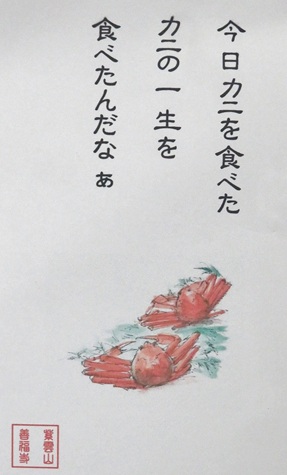 今日カニを食べた
カニの一生を
食べたんだなぁ
紫雲山
善福寺